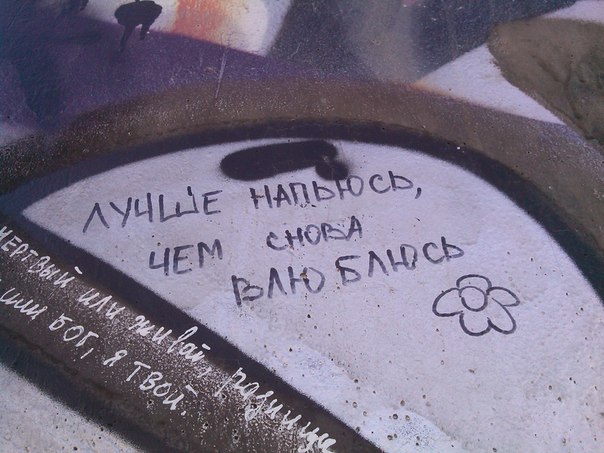 ЛУЧШЕ НАПЬЮСЬ,
ЧЕМ СНОВА
ВЛЮБЛЮСЬ
мертвый или живой, разница
или бог, я твой.